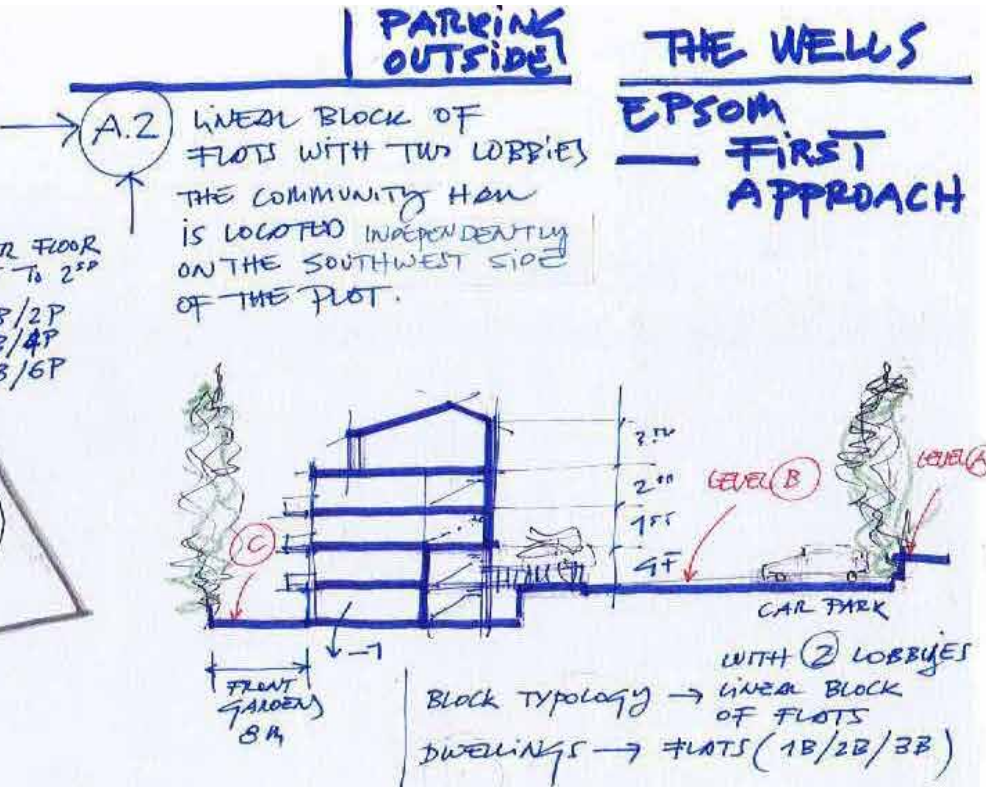 PARKING
OUTSIDE
THE WELLS
EPSOM
— FIRST
APPROACH
A.2
LINEAL BLOCK OF
FLOTS WITH TWO LOBBIES
THE COMMUNITY HALL
IS LOCATED INDEPENDENTLY
ON THE SOUTHWEST SIDE
OF THE PLOT.
R FLOOR
TO 2ND
B/2P
B/4P
B/6P
2ND
1ST
GF
LEVEL B
LEVEL A
C
-1
CAR PARK
FRONT
GARDENS
8M
WITH 2 LOBBYES
BLOCK TYPOLOGY → LINEAL BLOCK
OF FLATS
DWELLINGS → FLATS (1B/2B/3B)